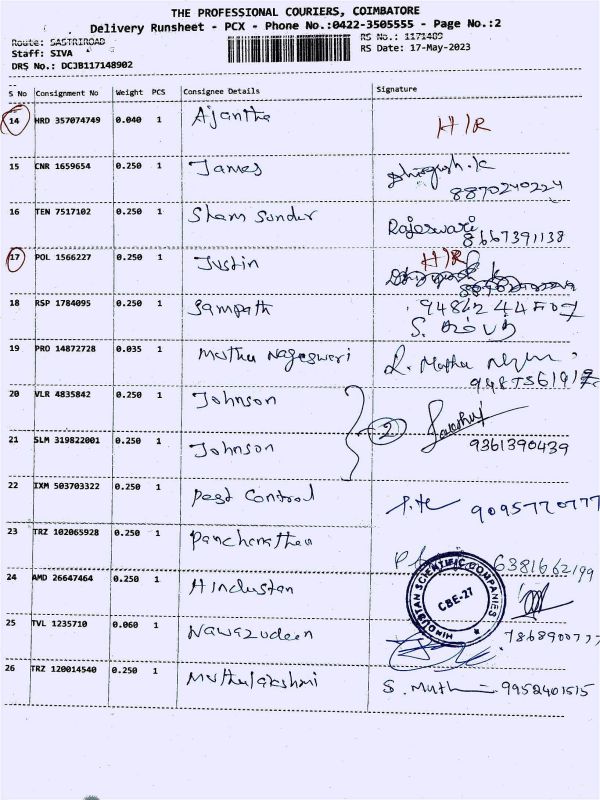 THE PROFESSIONAL COURIERS, COIMBATORE
Delivery Runsheet - PCX - Phone No.:0422-3505555 - Page No.:2
Route: SASTRIROAD RS No.: 1171489
Staff: SIVA RS Date: 17-May-2023
DRS No.: DCJB117148902
S No Consignment No Weight PCS Consignee Details Signature
14 HRD 357074749 0.040 1 Ajantha H/R
15 CNR 1659654 0.250 1 James
8870240224
16 TEN 7517102 0.250 1 Sham Sundar Rajeswari
8667391138
17 POL 1566227 0.250 1 Justin H/R
18 RSP 1784095 0.250 1 Sampath
S.
19 PRO 14872728 0.035 1 Muthu Nageswari R. Muthu
20 VLR 4835842 0.250 1 Johnson
2
21 SLM 319822001 0.250 1 Johnson 9361390439
22 IXM 503703322 0.250 1 Pest Control 9095770777
23 TRZ 102065928 0.250 1 6381662199
24 AMD 26647464 0.250 1 Hindustan
HINDUSTAN SCIENTIFIC COMPANIES
CBE-27
25 TVL 1235710 0.060 1 Nawazudeen 7868900777
26 TRZ 120014540 0.250 1 Muthulakshmi S. Muth 9952401515